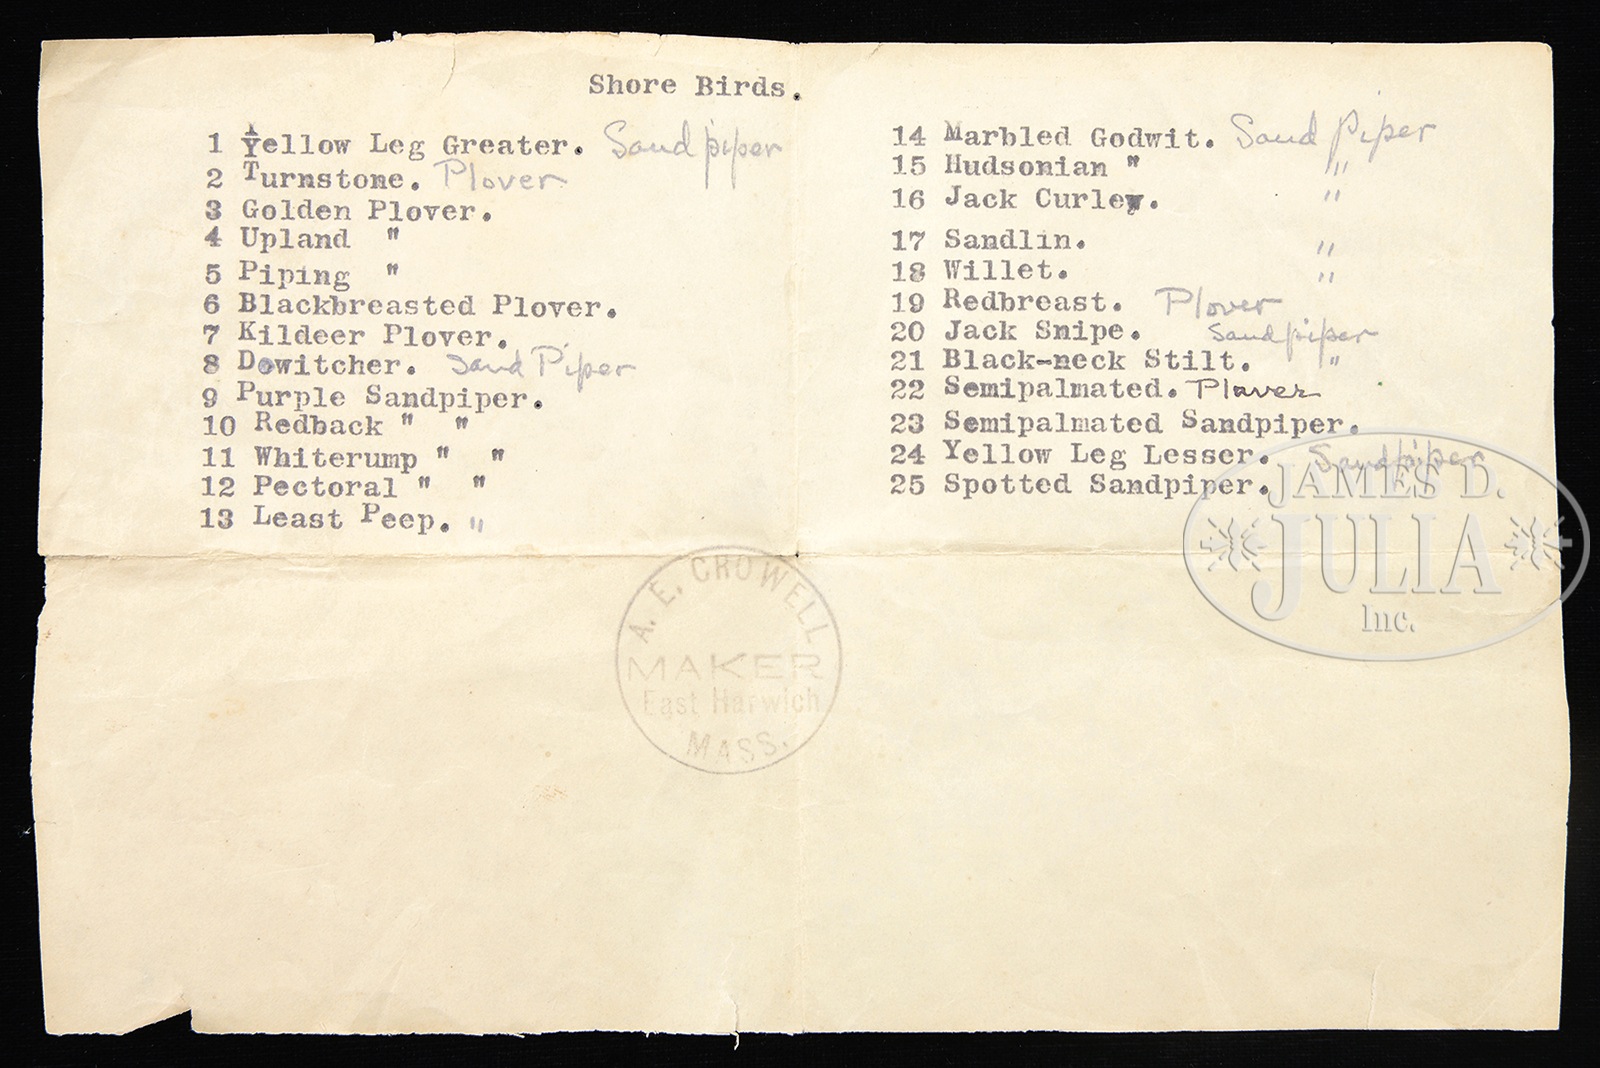 Shore Birds.
1 Yellow Leg Greater. Sandpiper
2 Turnstone. Plover
3 Golden Plover.
4 Upland "
5 Piping "
6 Blackbreasted Plover.
7 Kildeer Plover.
8 Dowitcher. Sand Piper
9 Purple Sandpiper.
10 Redback " "
11 Whiterump " "
12 Pectoral " "
13 Least Peep. "
14 Marbled Godwit. Sand Piper
15 Hudsonian " "
16 Jack Curley. "
17 Sandlin. "
18 Willet. "
19 Redbreast. Plover
20 Jack Snipe. Sandpiper
21 Black-neck Stilt. "
22 Semipalmated. Plover
23 Semipalmated Sandpiper.
24 Yellow Leg Lesser. Sandpiper
25 Spotted Sandpiper.
A. E. CROWELL
MAKER
East Harwich
MASS.
JAMES D.
JULIA
Inc.